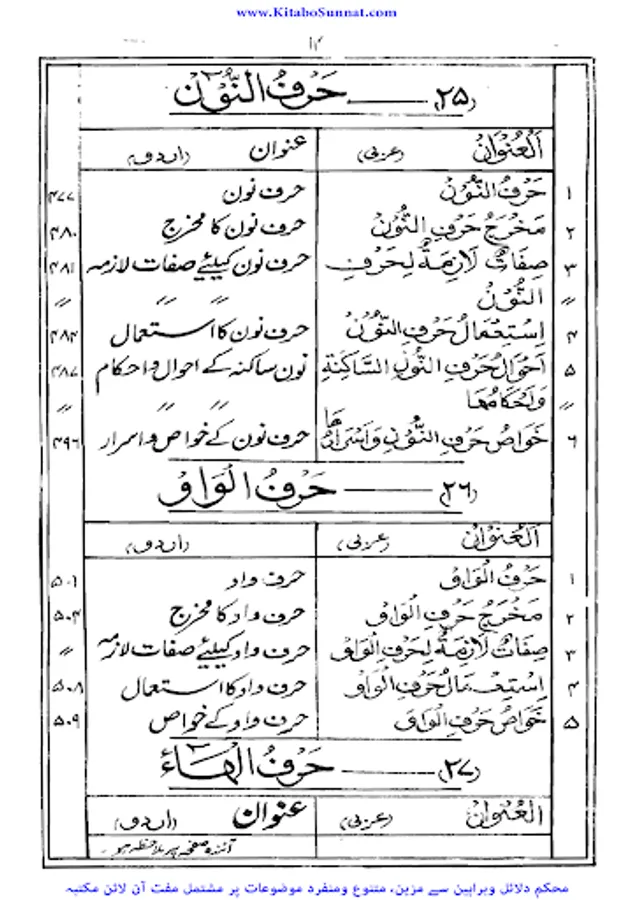 www.KitaboSunnat.com
۱۴
(۲۵) ——— حَرْفُ النُّوْن
اَلْعُنْوَانُ (عربی) عنوان (اردو)
۱ حَرْفُ النُّوْنُ حرف نون ۴۷۷
۲ مَخْرَجُ حَرْفِ النُّوْنُ حرف نون کا مخرج ۴۸۰
۳ صِفَاتٌ لَازِمَةٌ لِحَرْفِ حرف نون کیلئے صفات لازمہ ۴۸۱
〃 النُّوْنُ 〃 〃 〃 〃
۴ اِسْتِعْمَالُ حَرْفِ النُّوْنُ حرف نون کا استعمال ۴۸۴
۵ اَحْوَالُ حَرْفِ النُّوْنِ السَّاكِنَةِ نون ساکنہ کے احوال و احکام ۴۸۷
〃 وَاَحْكَامُهَا 〃 〃 〃
۶ خَوَاصُ حَرْفِ النُّوْنِ وَاَسْرَارُهَا حرف نون کے خواص و اسرار ۴۹۶
(۲۶) ——— حَرْفُ الْوَاو
اَلْعُنْوَانُ (عربی) (اردو)
۱ حَرْفُ الْوَاوِ حرف واو ۵۰۱
۲ مَخْرَجُ حَرْفِ الْوَاوِ حرف واو کا مخرج ۵۰۳
۳ صِفَاتٌ لَازِمَةٌ لِحَرْفِ الْوَاوِ حرف واو کیلئے صفات لازمہ 〃
۴ اِسْتِعْمَالُ حَرْفِ الْوَاوِ حرف واو کا استعمال ۵۰۸
۵ خَوَاصُ حَرْفِ الْوَاوِ حرف واو کے خواص ۵۰۹
(۲۷) ——— حَرْفُ الْهَاءُ
اَلْعُنْوَانُ (عربی) عنوان (اردو)
آئندہ صفحہ پر ملاحظہ ہو۔
محکم دلائل وبراہین سے مزین، متنوع ومنفرد موضوعات پر مشتمل مفت آن لائن مکتبہ